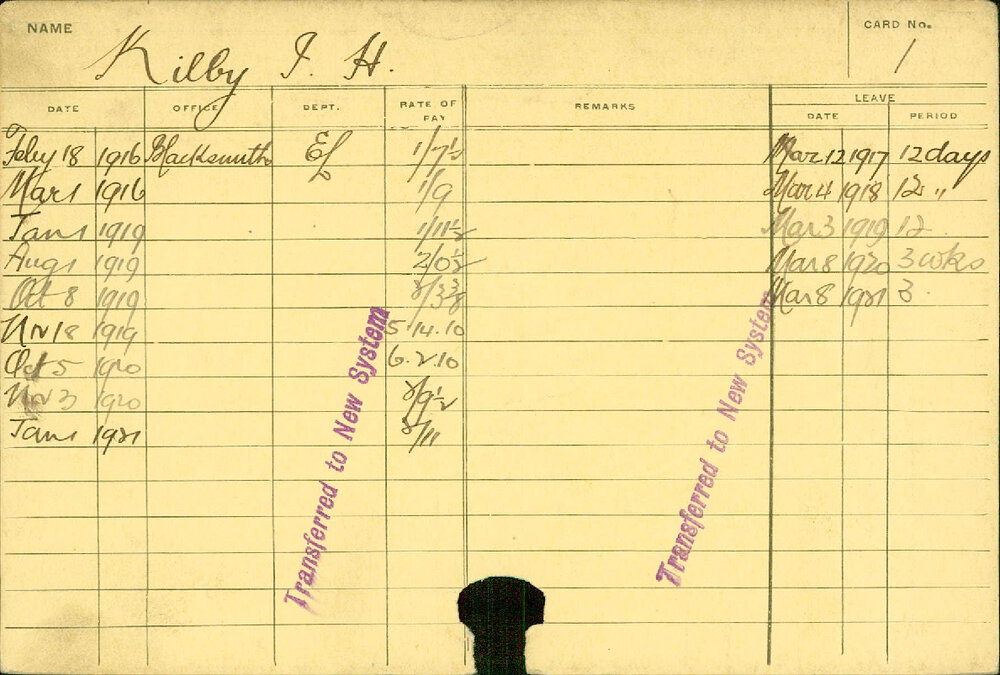 NAME
CARD No.
Kilby I. H.
1
DATE OFFICE DEPT. RATE OF PAY REMARKS LEAVE
DATE PERIOD
Feby 18 1916 Blacksmith EL 1/7½ Mar 12 1917 12 days
Mar 1 1916 1/9 Mar 4 1918 12 "
Jan 1 1919 1/11½ Mar 3 1919 12
Aug 1 1919 2/0½ Mar 8 1920 3 wks
Oct 8 1919 2/3⅜ Mar 8 1921 3
Nov 18 1919 5.14.10
Oct 5 1920 6.2.10
Nov 3 1920 2/9½
Jan 1 1921 2/11
Transferred to New System
Transferred to New System